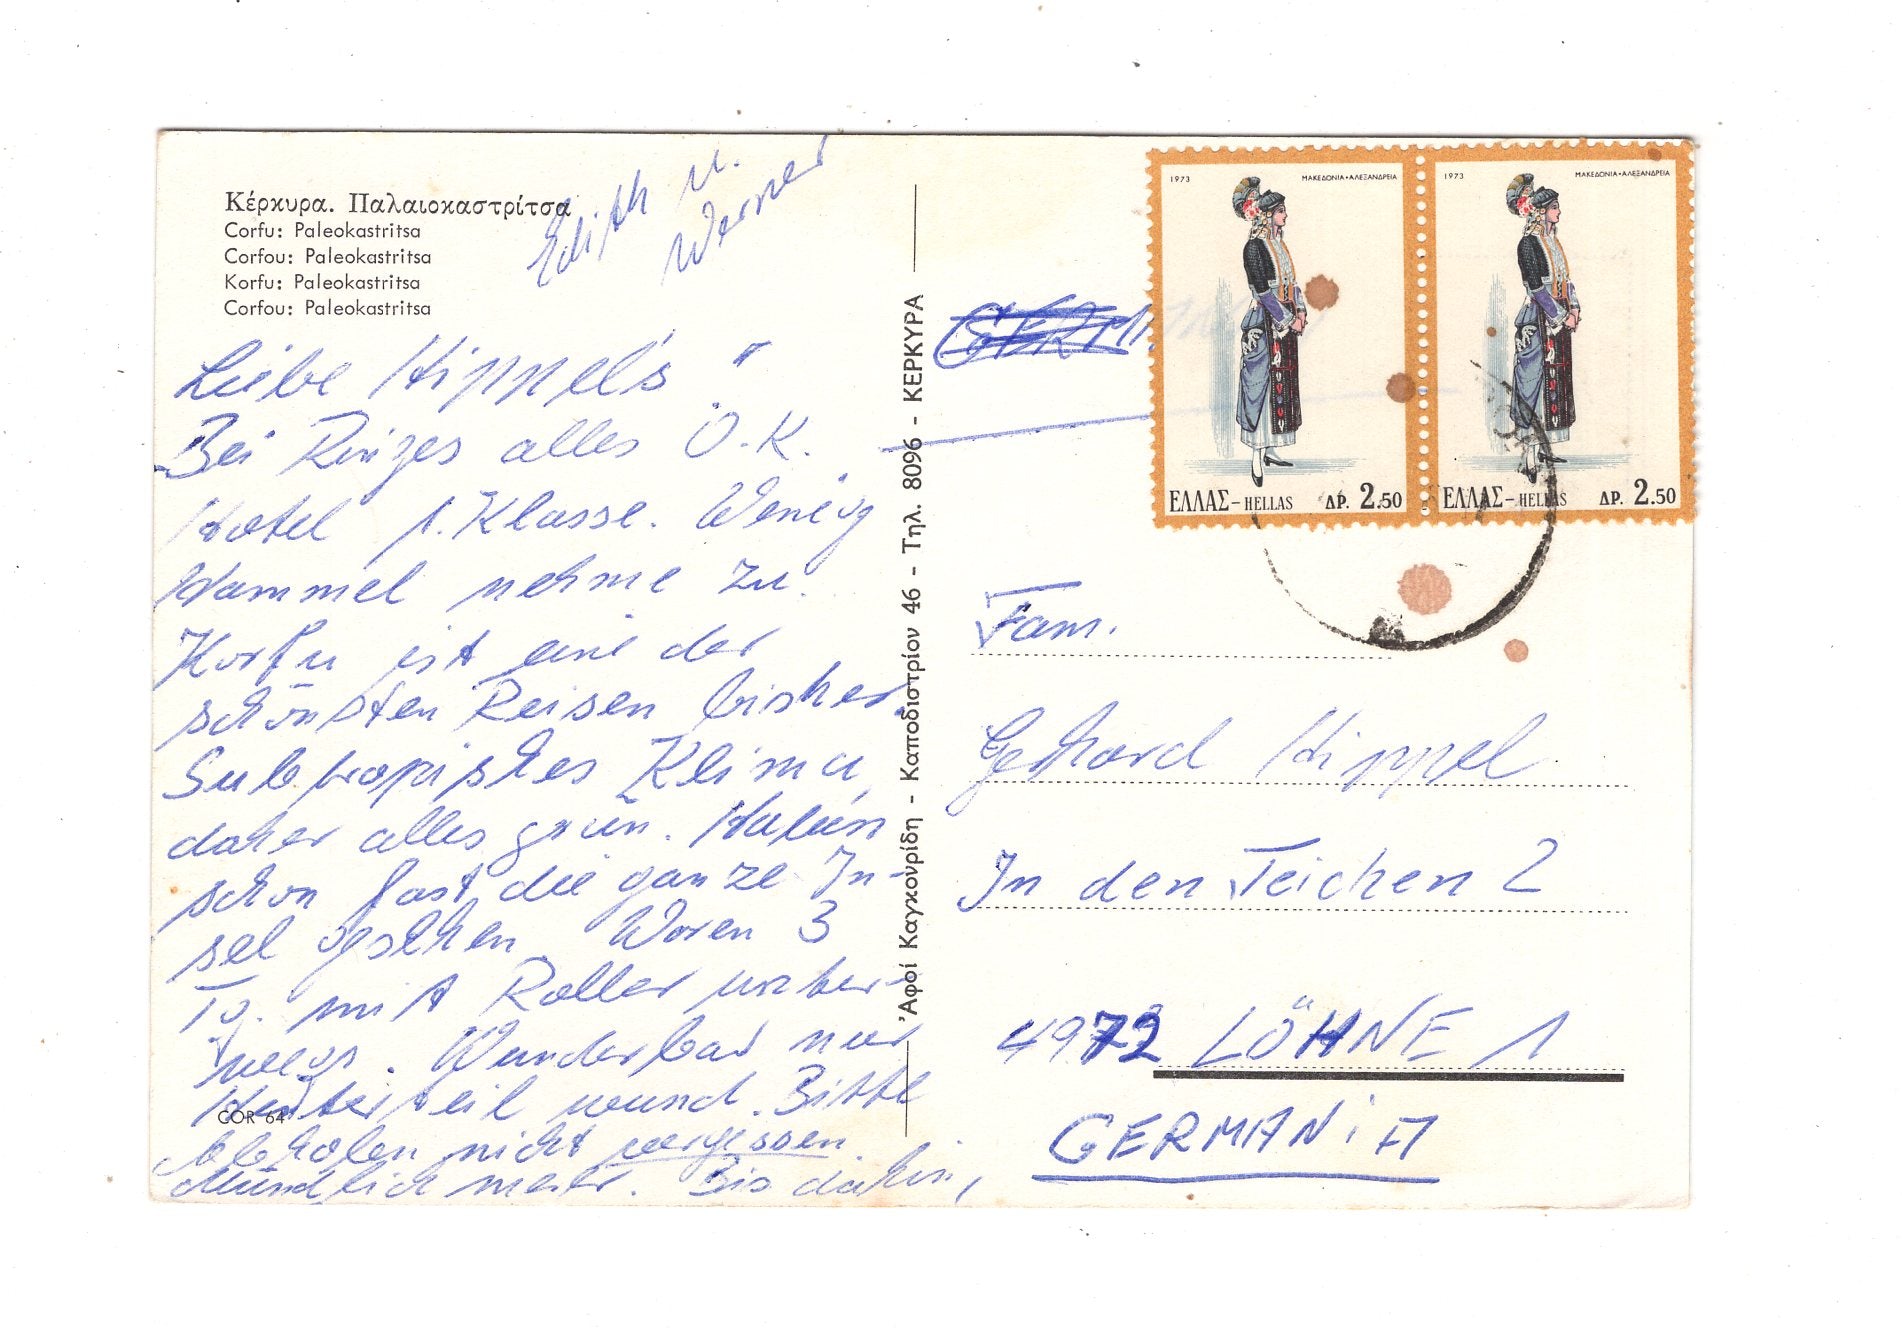 Κέρκυρα. Παλαιοκαστρίτσα
Corfu: Paleokastritsa
Corfou: Paleokastritsa
Korfu: Paleokastritsa
Corfou: Paleokastritsa
Edith u.
Werner
Liebe Hippel's"
Bei Rinjes alles O.K.
Hotel 1. Klasse. Wenig
Hammel nehme zu.
Korfu ist eine der
schönsten Reisen bisher.
Subtropisches Klima,
daher alles grün. Haben
schon fast die ganze In-
sel gesehen. Waren 3
Tg. mit Roller unter-
wegs. Wunderbar nur
Hinterteil wund. Bitte
Abholen nicht vergessen.
Mündlich mehr. Bis dahin,
COR 64
'Αφοί Καγκουρίδη - Καποδιστρίου 46 - Τηλ. 8096 - ΚΕΡΚΥΡΑ
1973 ΜΑΚΕΔΟΝΙΑ•ΑΛΕΞΑΝΔΡΕΙΑ
ΕΛΛΑΣ-HELLAS ΔΡ. 2.50
1973 ΜΑΚΕΔΟΝΙΑ•ΑΛΕΞΑΝΔΡΕΙΑ
ΕΛΛΑΣ-HELLAS ΔΡ. 2.50
Fam.
Gerhard Hippel
In den Teichen 2
4972 LÖHNE 1
GERMANiA